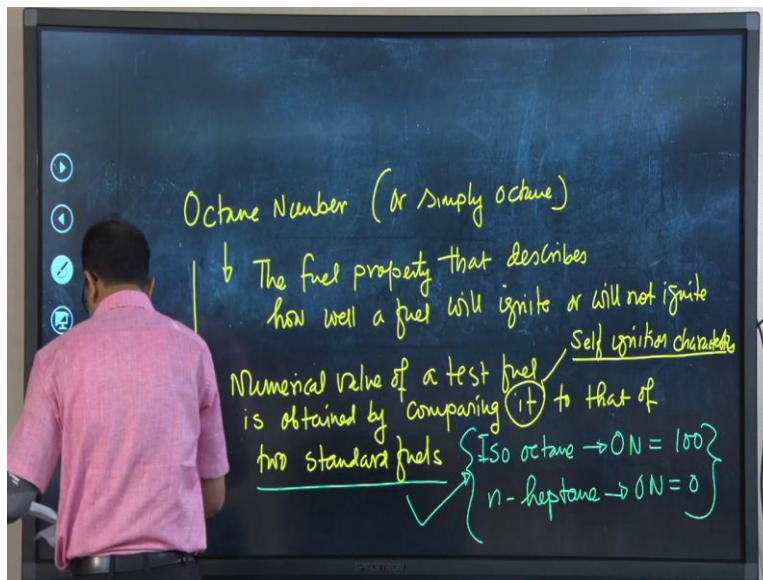 Octane Number (or simply octane)
↓ The fuel property that describes
how well a fuel will ignite or will not ignite
Self ignition characteristics
Numerical value of a test fuel
is obtained by comparing it to that of
two standard fuels
{Iso octane → ON = 100}
n-heptane → ON = 0